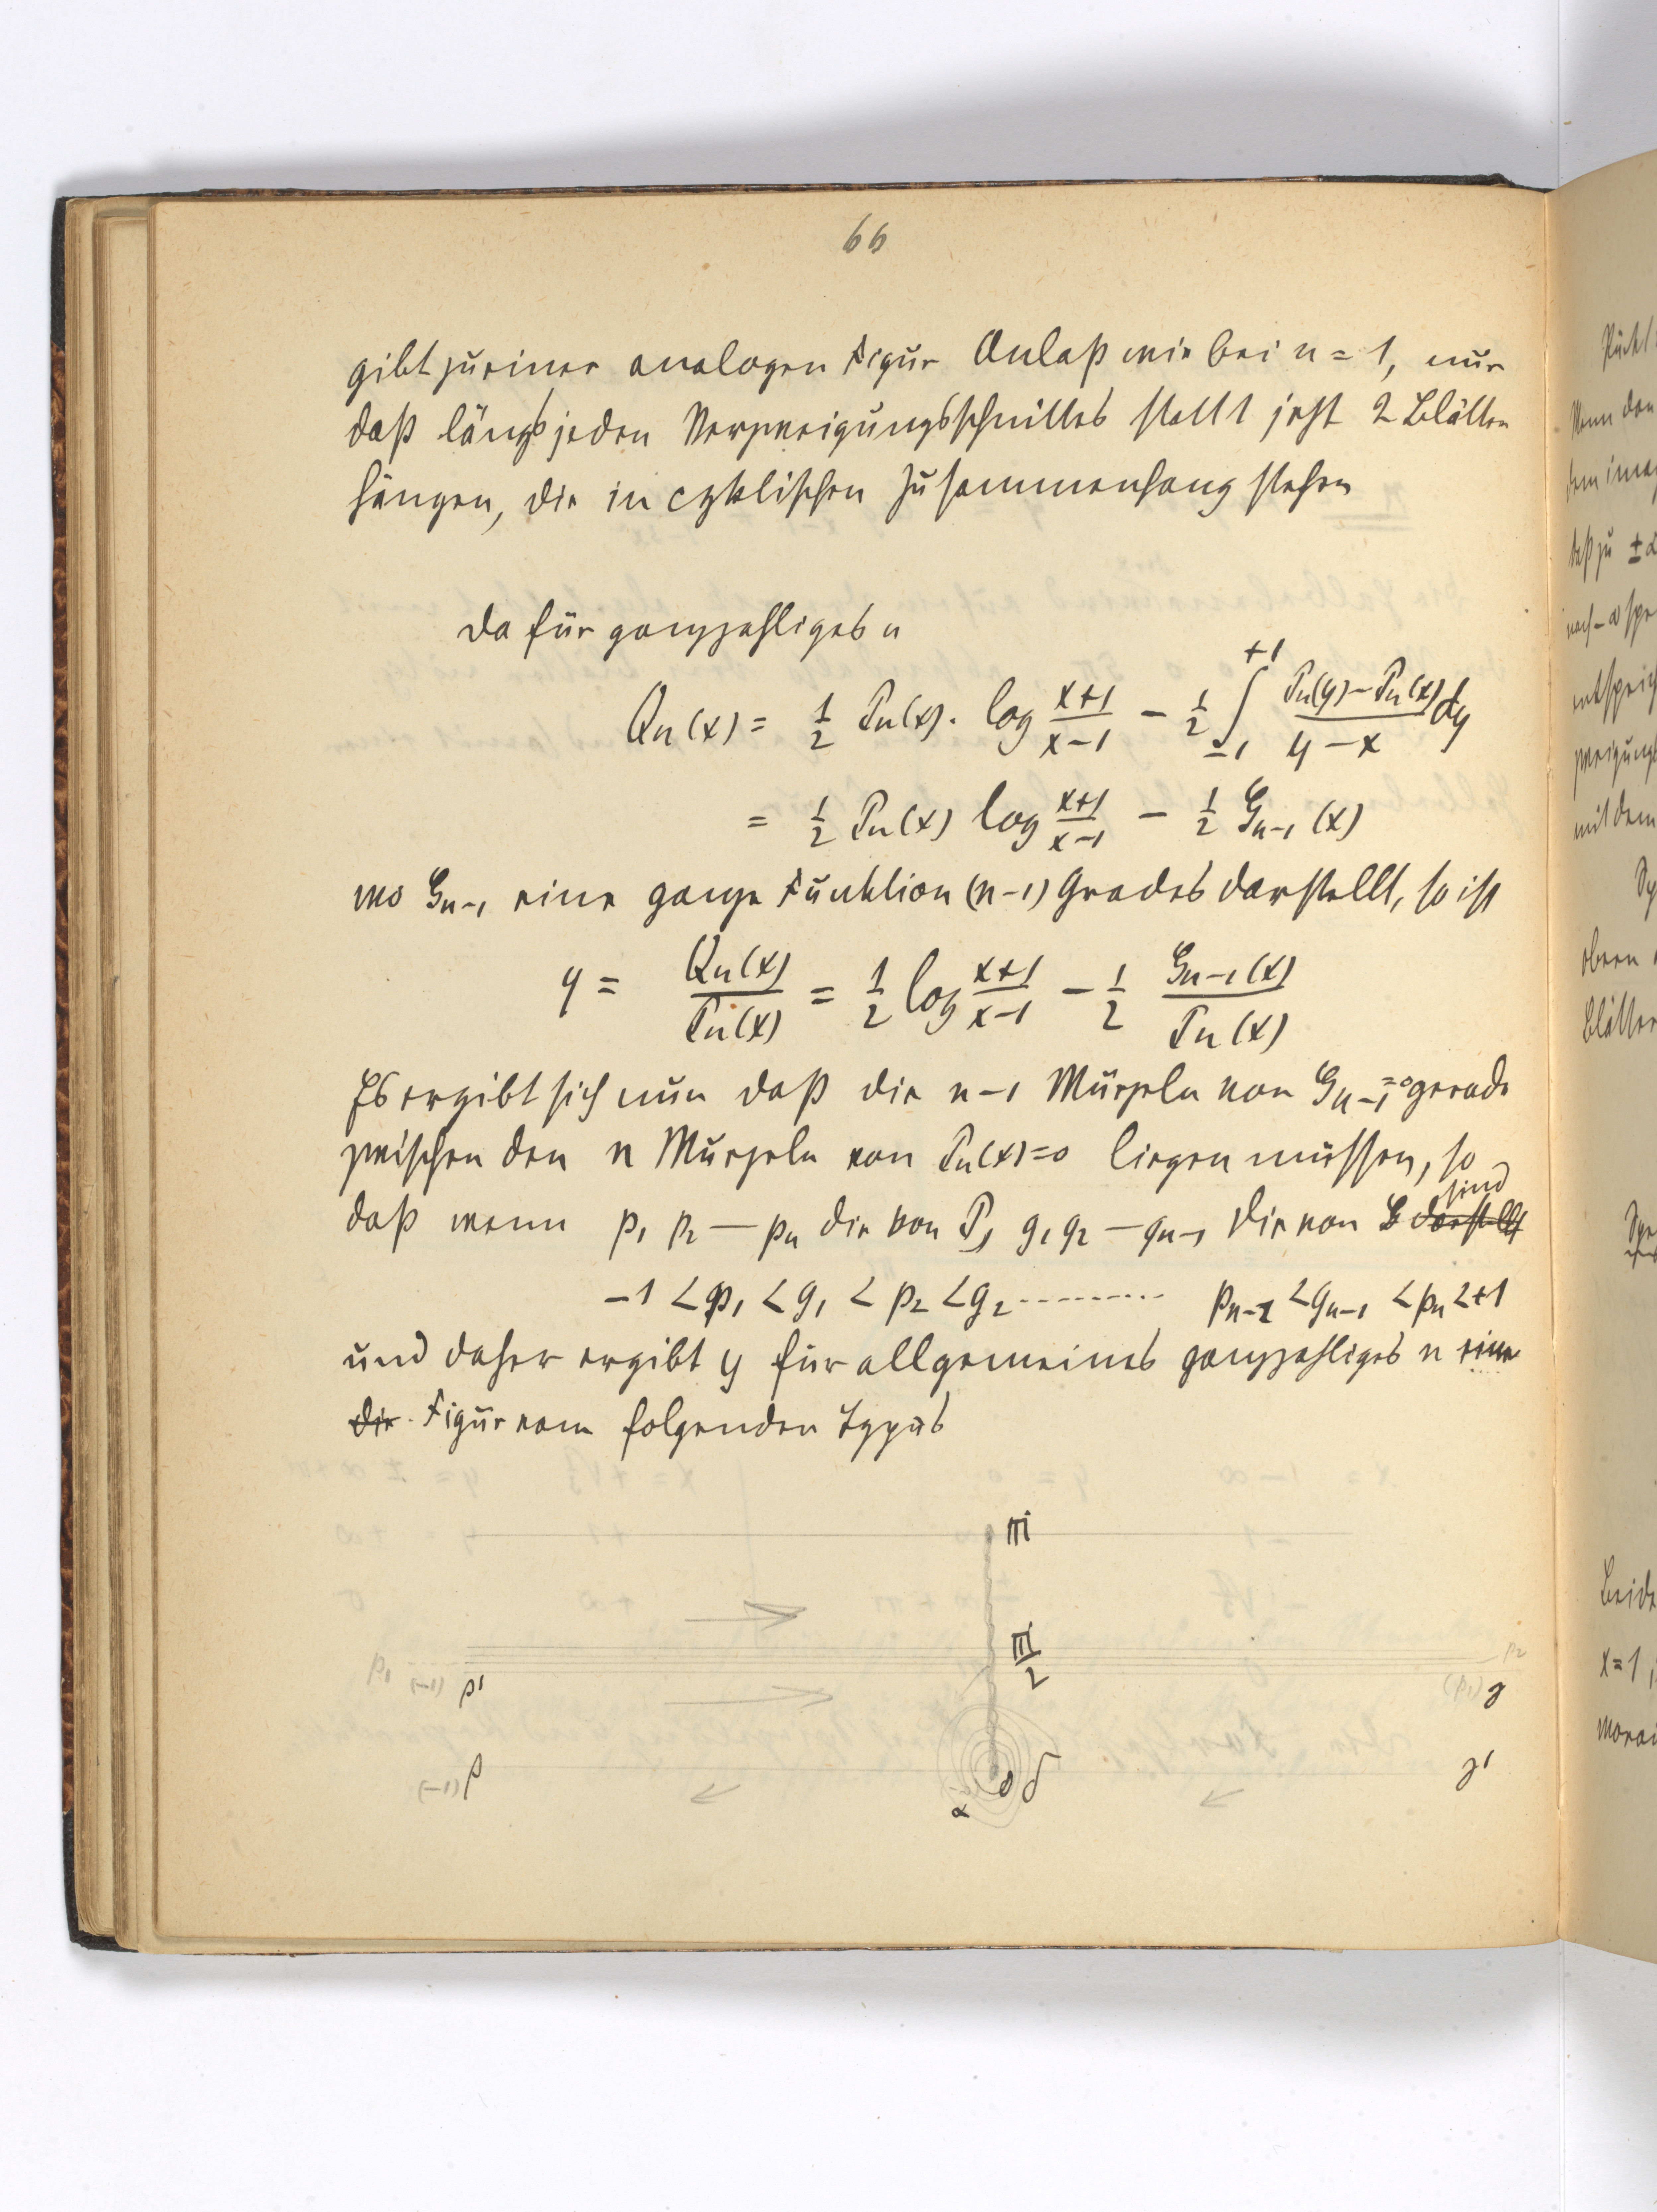 66
gibt zu einer analogen Figur Anlaß wie bei n = 1, nur
daß längs jeden Verzweigungsschnittes statt 1 jetzt 2 Blätter
hängen, die in cyklischen Zusammenhang stehen
Da für ganzzahliges n
Qn(x) = 1/2 Pn(x) · log (x+1)/(x−1) − 1/2 ∫_{−1}^{+1} (Pn(y) − Pn(x))/(y − x) dy
= 1/2 Pn(x) log (x+1)/(x−1) − 1/2 Gn−1 (x)
wo Gn−1 eine ganze Funktion (n−1) Grades darstellt, so ist
y = Qn(x)/Pn(x) = 1/2 log (x+1)/(x−1) − 1/2 Gn−1(x)/Pn(x)
Es ergibt sich nun daß die n−1 Wurzeln von Gn−1 = 0 gerade
zwischen den n Wurzeln von Pn(x) = 0 liegen müssen, so
daß wenn p1 p2 — pn die von P, g1 g2 — gn−1 die von G darstellt sind
−1 < p1 < g1 < p2 < g2 ---------- pn−1 < gn−1 < pn < +1
und daher ergibt y für allgemeines ganzzahliges n eine
die Figur vom folgenden Typus
πi
πi/2
p1 (−1) β' p2
(p1) γ
(−1) β 0 δ γ'
α